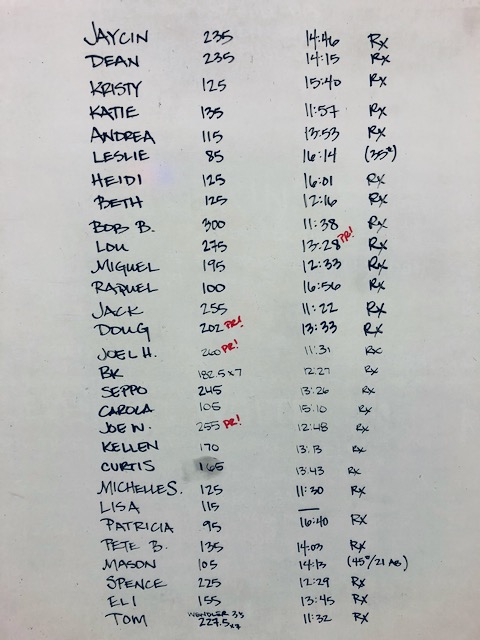 JAYCIN 235 14:46 Rx
DEAN 235 14:15 Rx
KRISTY 125 15:40 Rx
KATIE 135 11:57 Rx
ANDREA 115 13:53 Rx
LESLIE 85 16:14 (35#)
HEIDI 125 16:01 Rx
BETH 125 12:16 Rx
BOB B. 300 11:38 Rx
LOU 275 13:28 PR! Rx
MIGUEL 195 12:33 Rx
RAQUEL 100 16:56 Rx
JACK 255 11:22 Rx
DOUG 202 PR! 13:33 Rx
JOEL H. 260 PR! 11:31 Rx
BK 182.5 x 7 12:27 Rx
SEPPO 245 13:26 Rx
CAROLA 105 15:10 Rx
JOE N. 255 PR! 12:48 Rx
KELLEN 170 13:13 Rx
CURTIS 165 13:43 Rx
MICHELLE S. 125 11:30 Rx
LISA 115 —
PATRICIA 95 16:40 Rx
PETE B. 135 14:03 Rx
MASON 105 14:13 (45#/21 AB)
SPENCE 225 12:29 Rx
ELI 155 13:45 Rx
WENDLER 3.3
TOM 227.5 x7 11:32 Rx